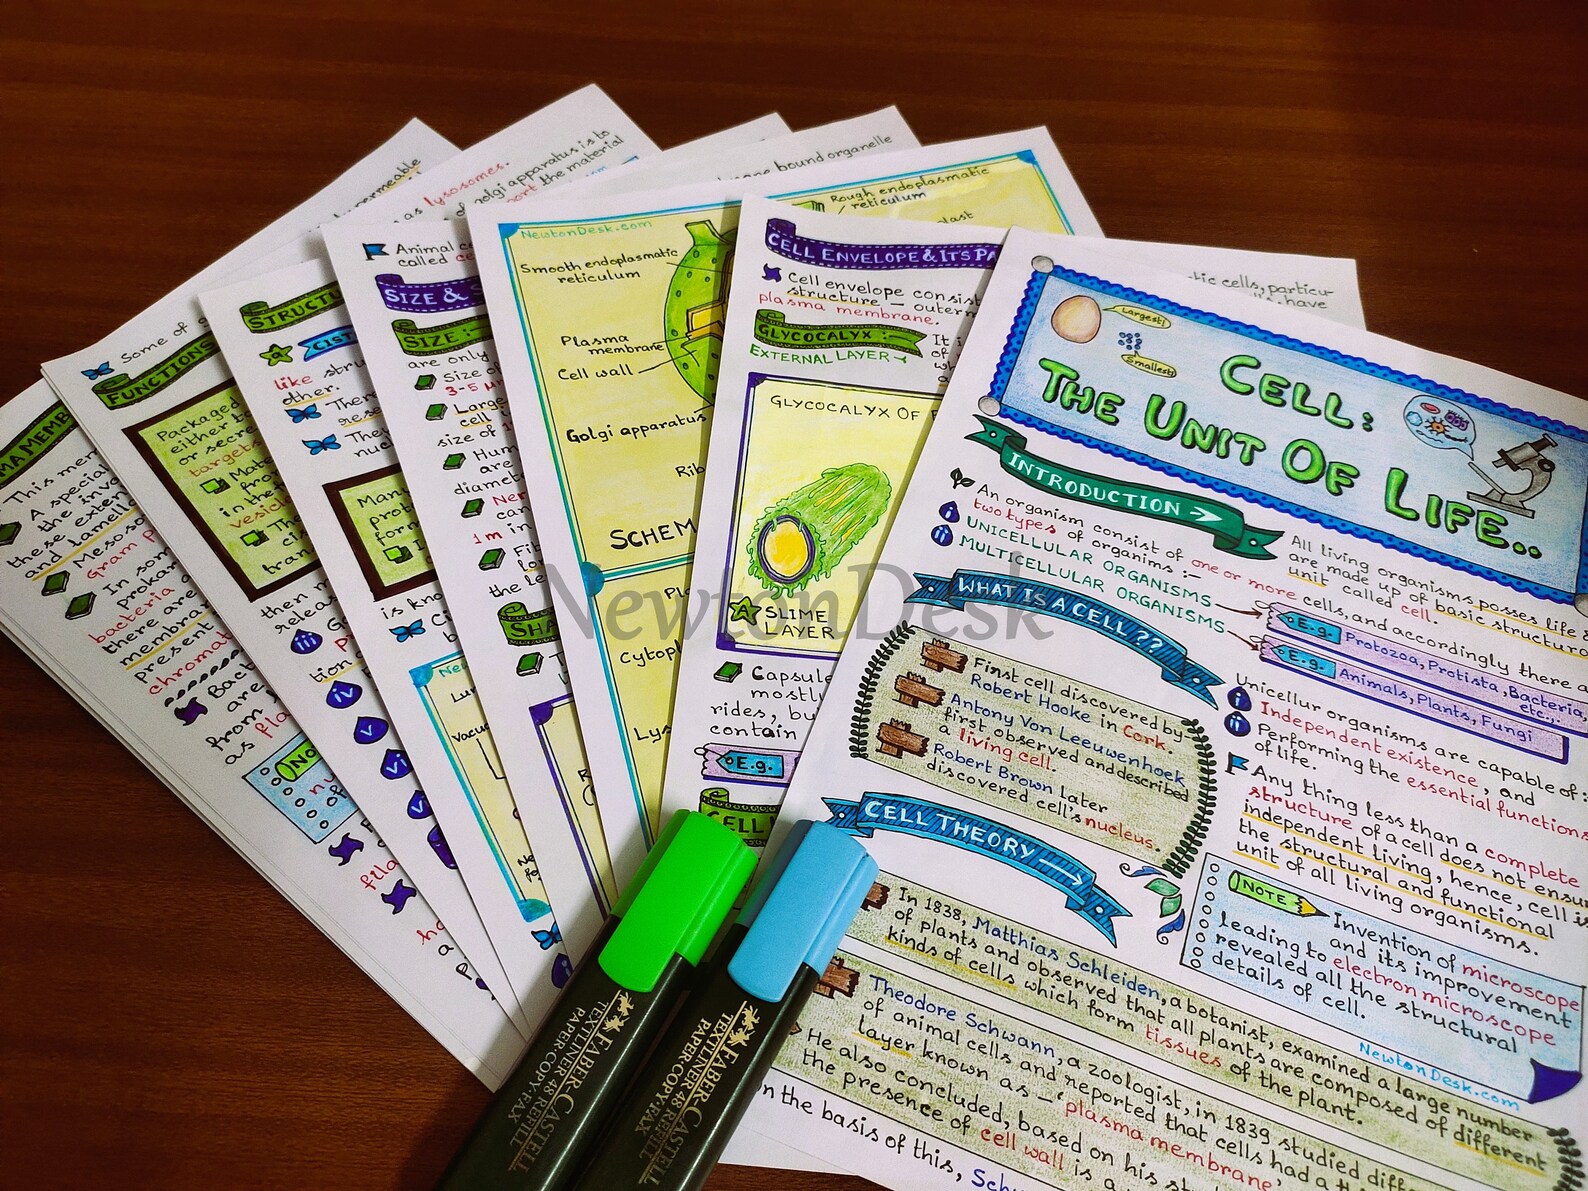 Largest!
Smallest!
CELL:
THE UNIT OF LIFE..
INTRODUCTION
An organism consist of one or more cells, and accordingly there a
two types of organims :-
i UNICELLULAR ORGANISMS
ii MULTICELLULAR ORGANISMS
E.g. Protozoa, Protista, Bacteria
etc.,.
E.g. Animals, Plants, Fungi
All living organisms possess life
are made up of basic structura
unit called cell.
WHAT IS A CELL ??
First cell discovered by
Robert Hooke in Cork.
Antony Von Leeuwenhoek
first observed and described
a living cell.
Robert Brown later
discovered cell's nucleus.
Unicellur organisms are capable of:
i Independent existence, and
ii Performing the essential functions
of life.
Any thing less than a complete
structure of a cell does not ensu
independent living, hence, cell is
the structural and functional
unit of all living organisms.
NOTE
Invention of microscope
and its improvement
leading to electron microscope
revealed all the structural
details of cell.
NewtonDesk.com
CELL THEORY
In 1838, Matthias Schleiden, a botanist, examined a large number
of plants and observed that all plants are composed of different
kinds of cells which form tissues of the plant.
Theodore Schwann, a zoologist, in 1839 studied diff
of animal cells and reported that cells had a th
layer known as – 'plasma membrane'
He also concluded, based on his st
the presence of cell wall is a
n the basis of this, Sch
tic cells, particu-
have
CELL ENVELOPE & IT'S PA
Cell envelope consist
structure – outerm
plasma membrane.
GLYCOCALYX :-
EXTERNAL LAYER
It i
of
GLYCOCALYX OF
A SLIME
LAYER
Capsule
mostly
rides, bu
contain
E.g.
CELL
NewtonDesk.com
Rough endoplasmatic
reticulum
Smooth endoplasmatic
reticulum
Plasma
membrane
Cell wall
Golgi apparatus
Rib
SCHEM
Cytopl
Lys
bound organelle
Animal ce
called ce
SIZE & S
SIZE :-
are only
Size of
3-5 μm
Large
cell i
size of 1
Hum
are
diamet
Ner
can
1m in
Fib
lo
the le
SHA
as lysosomes.
golgi apparatus is to
the material
STRUCTU
a CIST
like stru
other.
Ther
rese
They
nuc
Many
prot
form
is kno
Ci
Lu
Vacu
permeable
Some of g
FUNCTIONS
Packaged
either to
or secre
targets
Mat
fro
in the
vesic
The
tran
then m
relea
iii Go
P
tion
iv
v
vi
MA MEMB
This mem
A special
the invo
these exten
and lamell
Mesoso
Gram P
In som
prokar
bacteria
there are
membrane
present
chromat
Bact
are
from
as fla
NO
fila
NewtonDesk
FABER-CASTELL
TEXTLINER 48 REFILL
PAPER·COPY·FAX
FABER-CASTELL
TEXTLINER 48 REFILL
PAPER·COPY·FAX